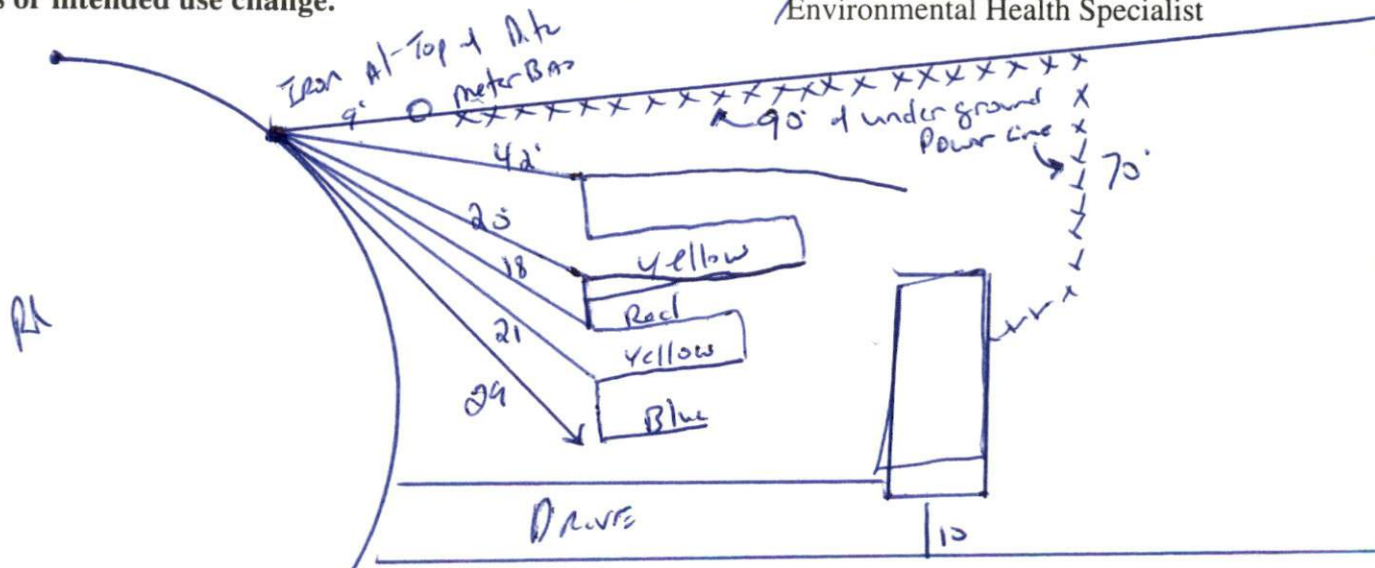 s or intended use change.
Environmental Health Specialist
Iron At Top of Ditch
9'
meter Base
90' of underground
Power Line
70'
42'
25
18
21
29
Yellow
Red
Yellow
Blue
Rd
DRIVE
10